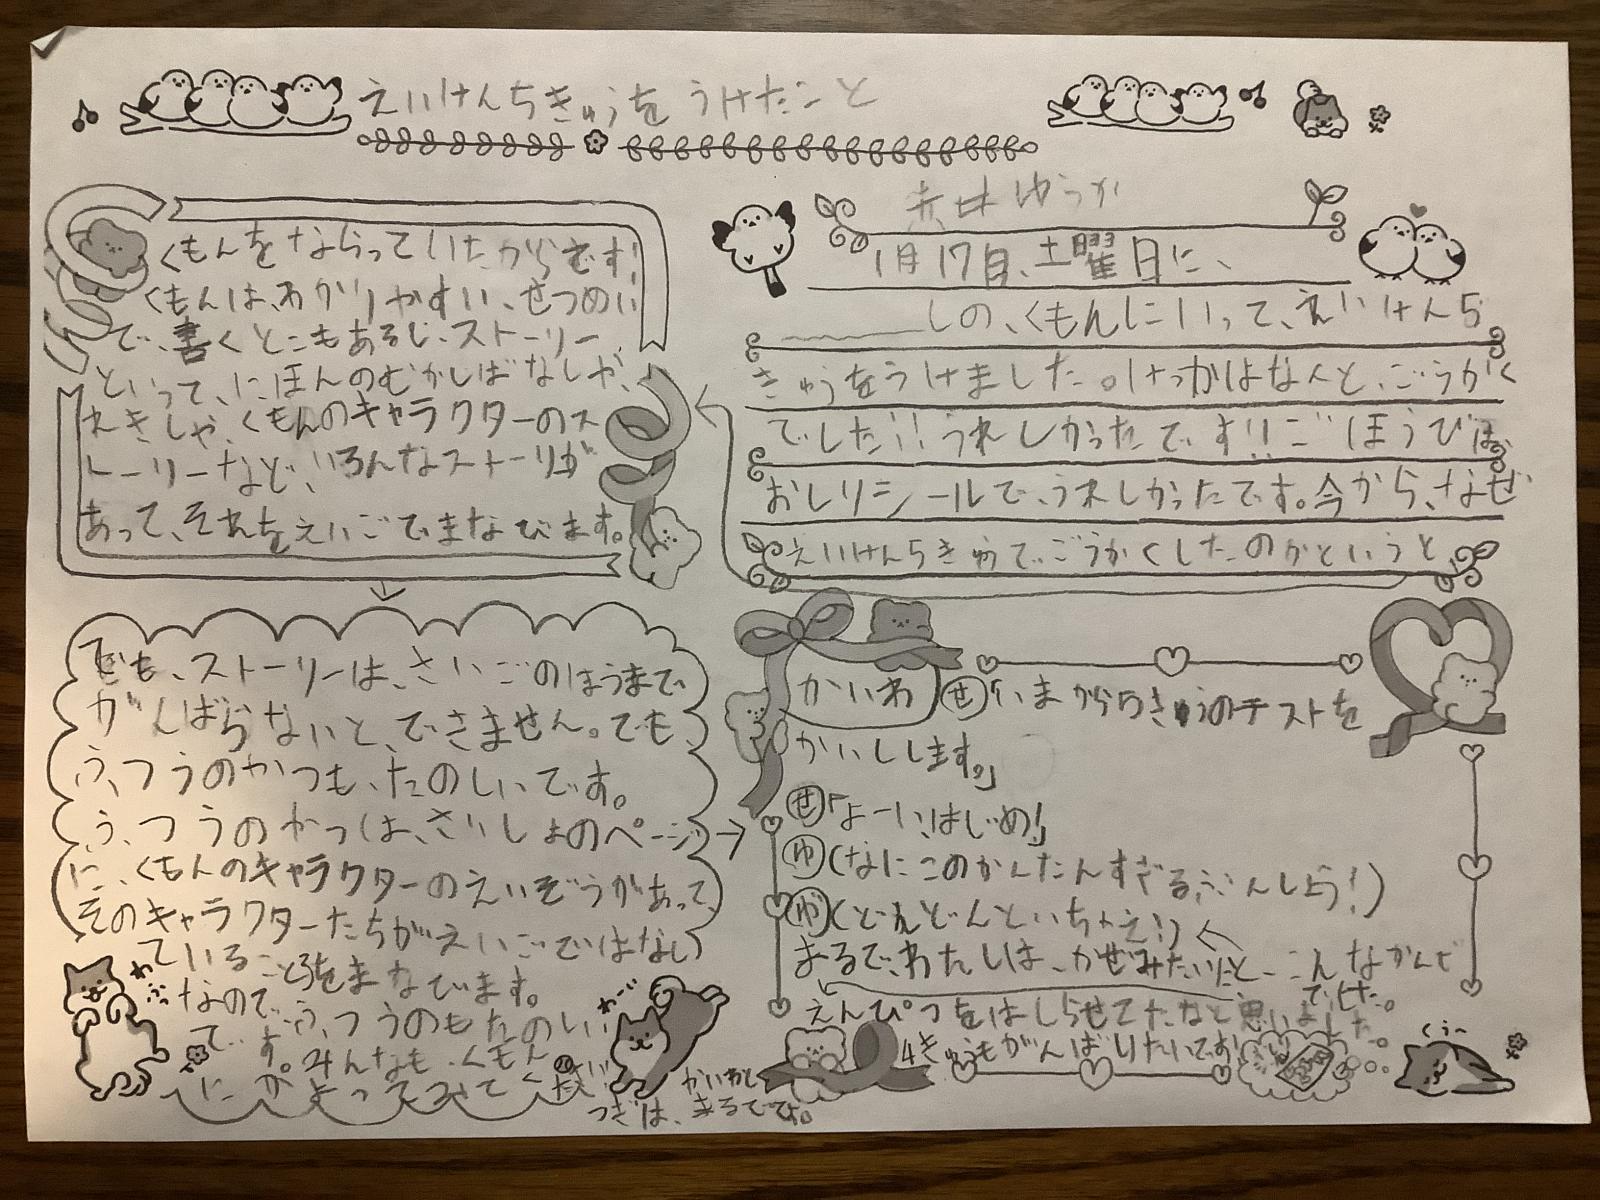 えいけんちきゅうをうけたこと
赤井ゆうか
1月17日、土曜日に、
しの、くもんにいって、えいけん5
きゅうをうけました。けっかはなんと、ごうかく
でした!!うれしかったです!!ごほうびは
おしりシールで、うれしかったです。今から、なぜ
えいけん5きゅうで、ごうかくしたのかというと
くもんをならっていたからです!
くもんは、わかりやすい、せつめい
で、書くとこもあるし、ストーリー
といって、にほんのむかしばなしや、
れきしや、くもんのキャラクターのス
トーリーなど、いろんなストーリが
あって、それをえいごでまなびます。
でも、ストーリーは、さいごのほうまで
がんばらないと、できません。でも、
ふ、つうのかつも、たのしいです。
ふ、つうのかつは、さいしょのページ
に、くもんのキャラクターのえいぞうがあって、
そのキャラクターたちがえいごではない
ていることろをまなびます。
なので、ふ、つうのもたのしい
です。みんなも、くもん
にかよってみてください!!
わふっ
わーい
つぎは、かいわと
まるでです。
かいわ
せ「いまから5きゅうのテストを
かいしします。」
せ「よーい、はじめ!」
ゆ(なにこのかんたんすぎる、ぶんしょう!)
ゆ(どんどんといちゃえ!)
まるで、わたしは、かぜみたいにと、こんなかんじ
でした。
えんぴつをはしらせてたなと思いました。
4きゅうもがんばりたいです!
くぅ〜